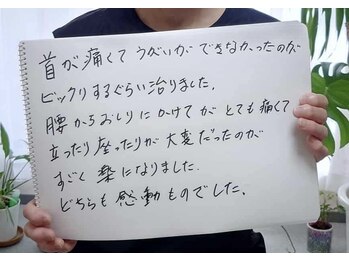 首が痛くてうがいができなかったのが
ビックリするぐらい治りました。
腰からおしりにかけてがとても痛くて
立ったり座ったりが大変だったのが
すごく楽になりました。
どちらも感動ものでした。